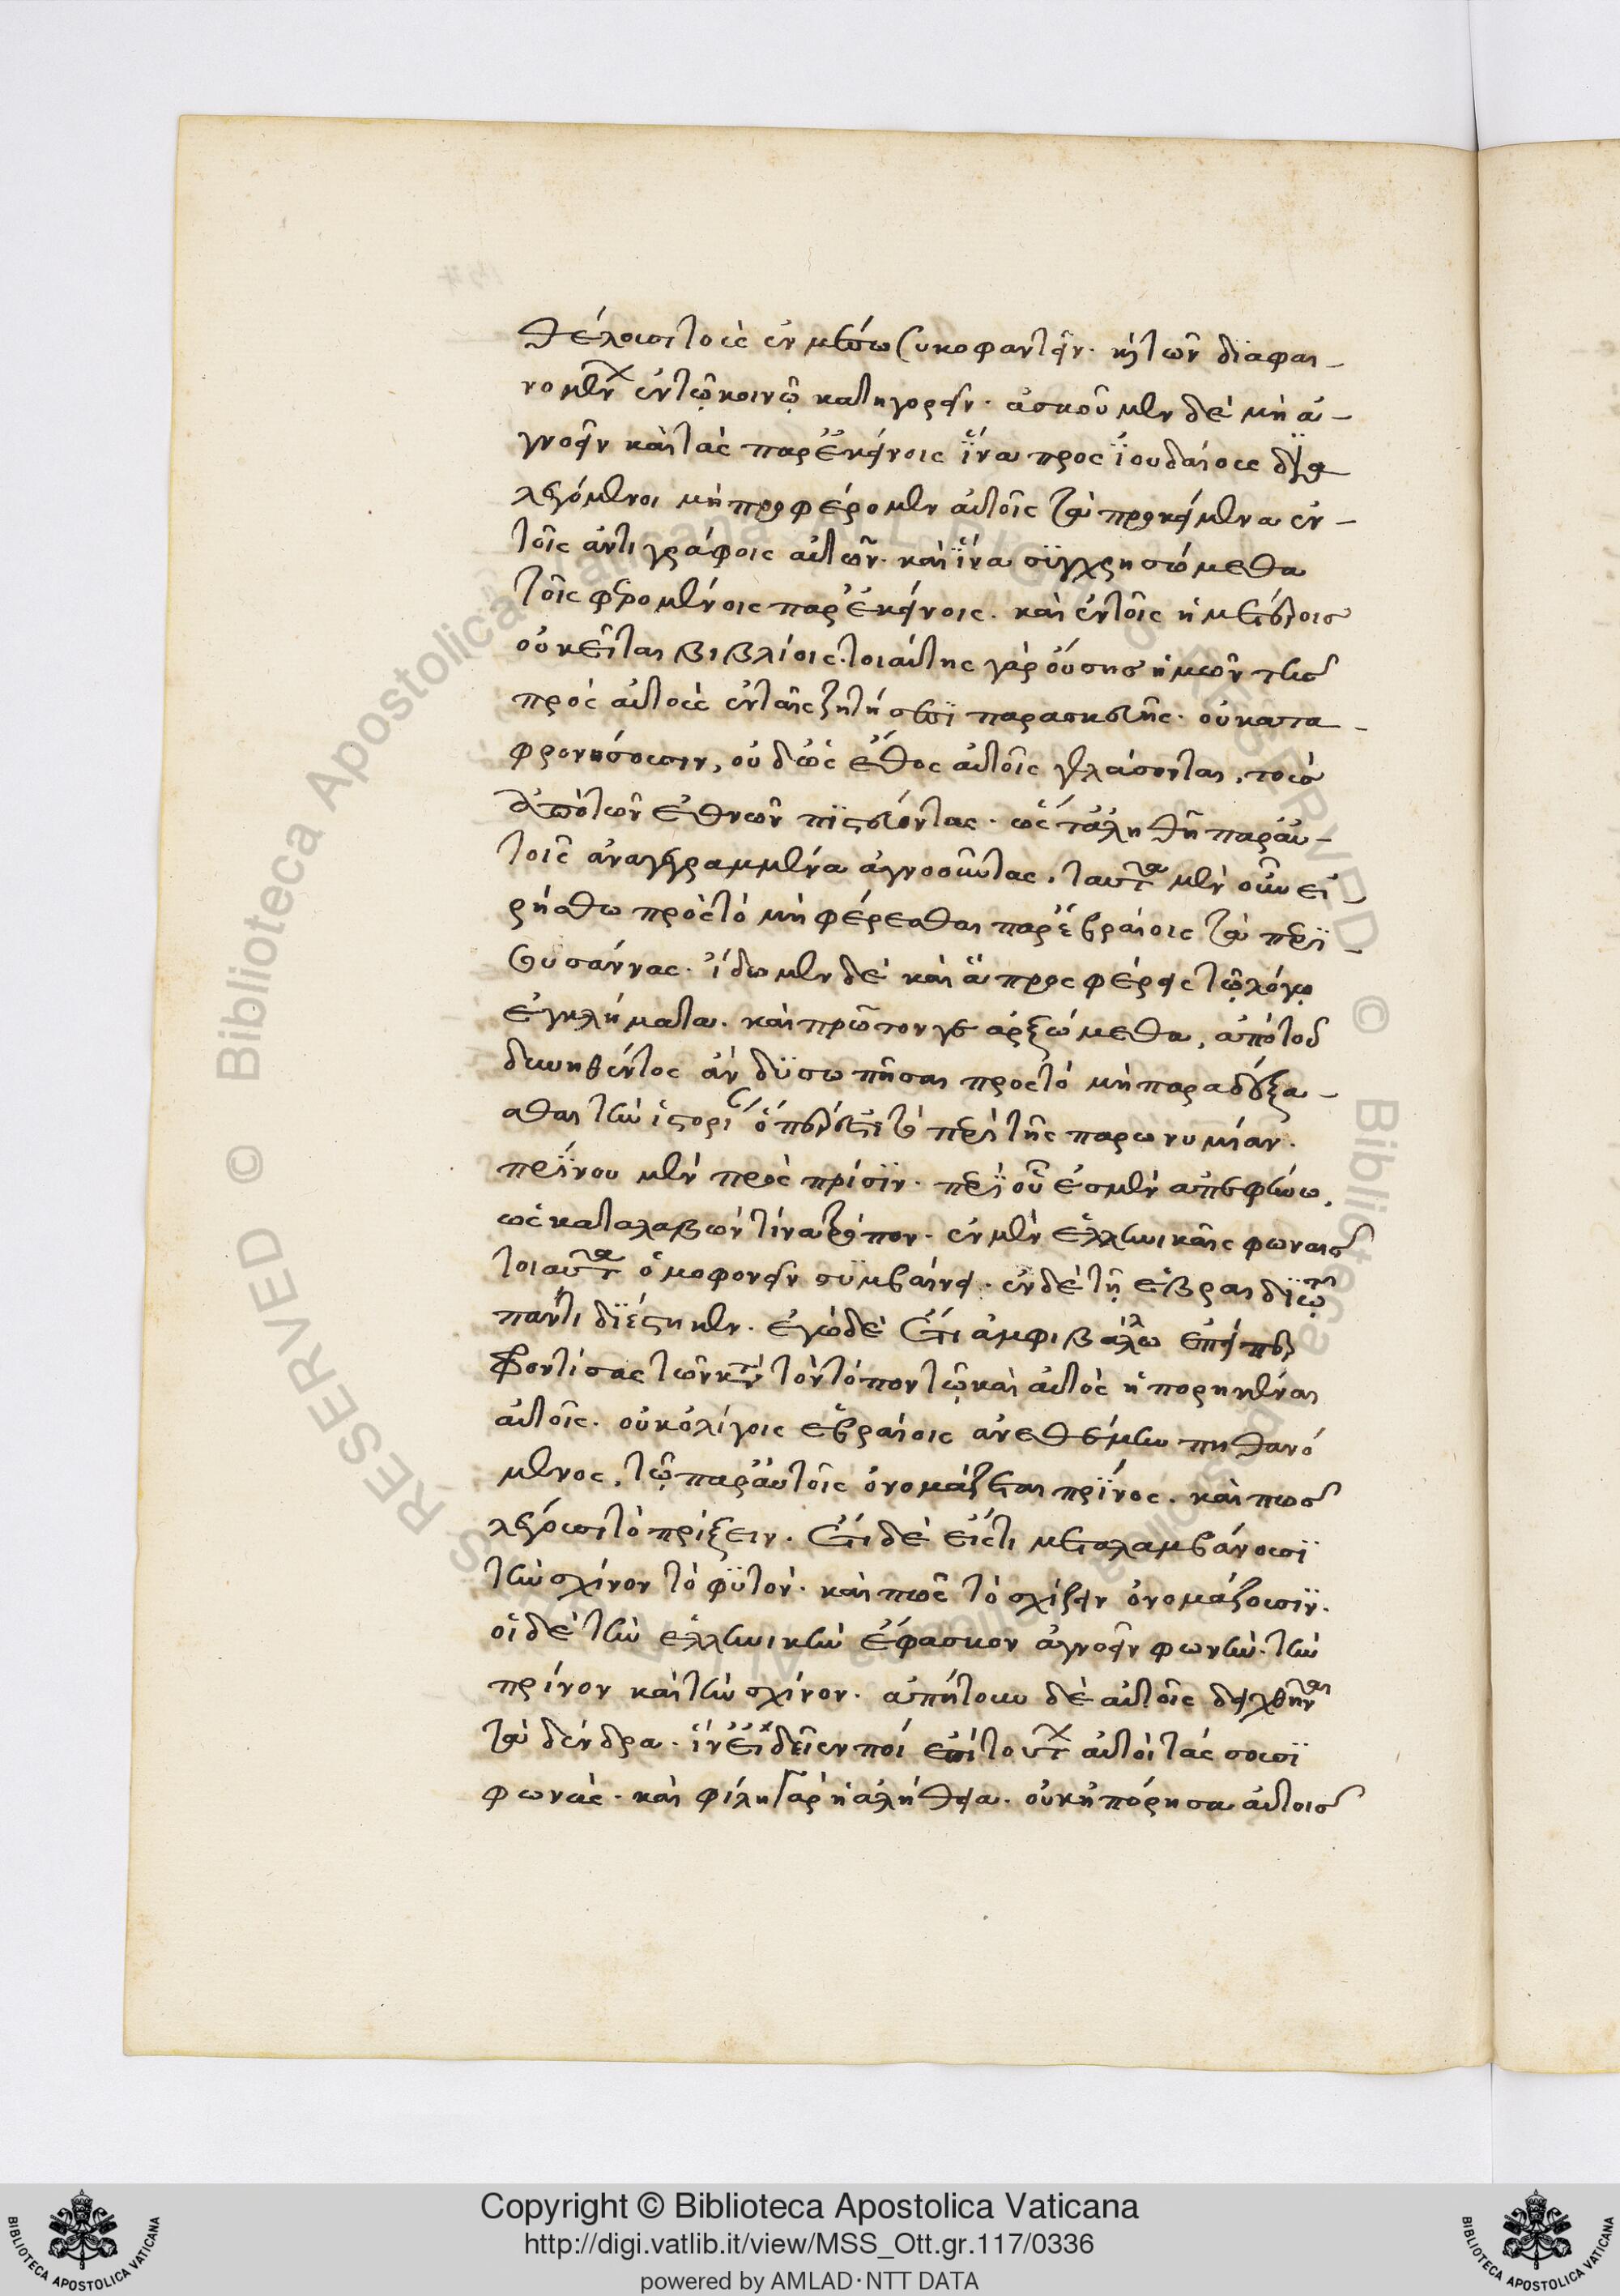 θέλουσι τοὺς ἐν μέσω συκοφαντεῖν. καὶ τῶν διαφαι-
νομένων ἐν τῷ κοινῷ κατηγορεῖν. ἀσκοῦμεν δὲ μὴ ἀ-
γνοεῖν καὶ τὰς παρ' ἐκείνοις ἵνα πρὸς ἰουδαίους δια
λεγόμενοι μὴ προφέρομεν αὐτοῖς τὰ προκείμενα ἐν
τοῖς ἀντιγράφοις αὐτῶν. καὶ ἵνα συγχρησώμεθα
τοῖς φερομένοις παρ' ἐκείνοις. καὶ ἐν τοῖς ἡμετέροις
οὐ κεῖται βιβλίοις. τοιαύτης γὰρ οὔσης ἡμῶν τῆς
πρὸς αὐτοὺς ἐν ταῖς ζητήσεσι παρασκευῆς. οὐ κατα-
φρονήσουσιν, οὐδ' ὡς ἔθος αὐτοῖς γελάσονται, τοὺς
ἀπὸ τῶν ἐθνῶν πιστεύοντας. ὡς τ' ἀληθῆ παρ' αὐ-
τοῖς ἀναγεγραμμένα ἀγνοοῦντας. ταῦτα μὲν οὖν εἰ
ρήσθω πρὸς τὸ μὴ φέρεσθαι παρ' ἑβραίοις τὰ περὶ
σουσάννας. ἴδωμεν δὲ καὶ ἃ προσφέρεις τῷ λόγῳ
ἐγκλήματα. καὶ πρῶτον γε ἀρξώμεθα, ἀπὸ τοῦ
δυνηθέντος ἂν δυσωπῆσαι πρὸς τὸ μὴ παραδέξα-
σθαι τὴν ἱστορίαν ὅπερ ἐστὶ τὸ περὶ τῆς παρωνυμίαν.
πρίνου μὲν πρὸς πρίσιν. περὶ οὗ ἐσμὲν ἀπεφήνω,
ὡς καταλαβὼν τίνα τρόπον. ἐν μὲν ἑλληνικαῖς φωναῖς
τοιαῦτα ὁμοφονεῖν συμβαίνει. ἐν δὲ τῇ ἑβραΐδι τῷ
παντὶ διέστηκεν. ἐγὼ δὲ ἔτι ἀμφιβάλλω ἐπείπερ
φροντίσας τῶν κατὰ τὸν τόπον τῷ καὶ αὐτὸς ἠπορηκέναι
αὐτοῖς. οὐκ ὀλίγοις ἑβραίοις ἀνεθέμην πηθανό
μενος, τῷ παρ' αὐτοῖς ὀνομάζεται πρίνος. καὶ πῶς
λέγουσι τὸ πρίζειν. ἔτι δὲ εἴς τι μεταλαμβάνουσι
τὴν σχίνον τὸ φυτόν. καὶ πῶς τὸ σχίζειν ὀνομάζουσιν.
οἱ δὲ τὴν ἑλληνικὴν ἔφασκον ἀγνοεῖν φωνὴν. τὴν
πρίνον καὶ τὴν σχίνον. ἀπήτουν δὲ αὐτοῖς δειχθῆναι
τὰ δένδρα. ἵν' εἰδεῖεν ποί ἐπὶ τούτων αὐτοὶ τάσουσι
φωνάς. καὶ φίλη γὰρ ἡ ἀλήθεια. οὐκ ἠπόρησα αὐτοῖς
Copyright © Biblioteca Apostolica Vaticana
http://digi.vatlib.it/view/MSS_Ott.gr.117/0336
powered by AMLAD·NTT DATA